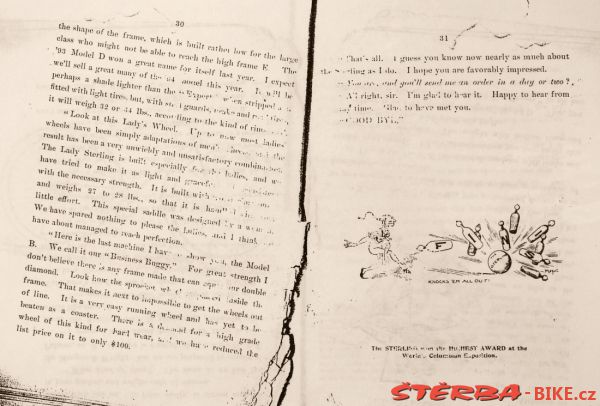 30
the shape of the frame, which is built rather low for the large
class who might not be able to reach the high frame E. The
'93 Model D won a great name for itself last year. I expect
we'll sell a great many of the '94 model this year. It will be
perhaps a shade lighter than the "Expert." When stripped and
fitted with light tires, but, with guards, brake and
it will weigh 32 or 34 lbs., according to the kind of tires
"Look at this Lady's Wheel. Up to now most ladies'
wheels have been simply adaptations of men's and the
result has been a very unwieldy and unsatisfactory combination.
The Lady Sterling is built especially for the ladies, and we
have tried to make it as light and graceful as is consistent
with the necessary strength. It is built with
and weighs 27 to 28 lbs., so that it is with
little effort. This special saddle was designed by a woman.
We have spared nothing to please the ladies, and I think we
have about managed to reach perfection.
"Here is the last machine I have to show you, the Model
B. We call it our "Business Buggy." For great strength I
don't believe there is any frame made that can our double
diamond. Look how the sprocket inside the
frame. That makes it next to impossible to get the wheels out
of line. It is a very easy running wheel and has yet to be
beaten as a coaster. There is a demand for a high grade
wheel of this kind for hard wear, and we have reduced the
list price on it to only $100.
31
"That's all. I guess you know now nearly as much about
the Sterling as I do. I hope you are favorably impressed.
"You are, and you'll send me an order in a day or two?
"All right, sir. I'm glad to hear it. Happy to hear from
any time. Glad to have met you.
"GOOD BYE."
F
KNOCKS 'EM ALL OUT!
The STERLING won the HIGHEST AWARD at the
World's Columbian Exposition.
ŠTĚRBA-BIKE.cz